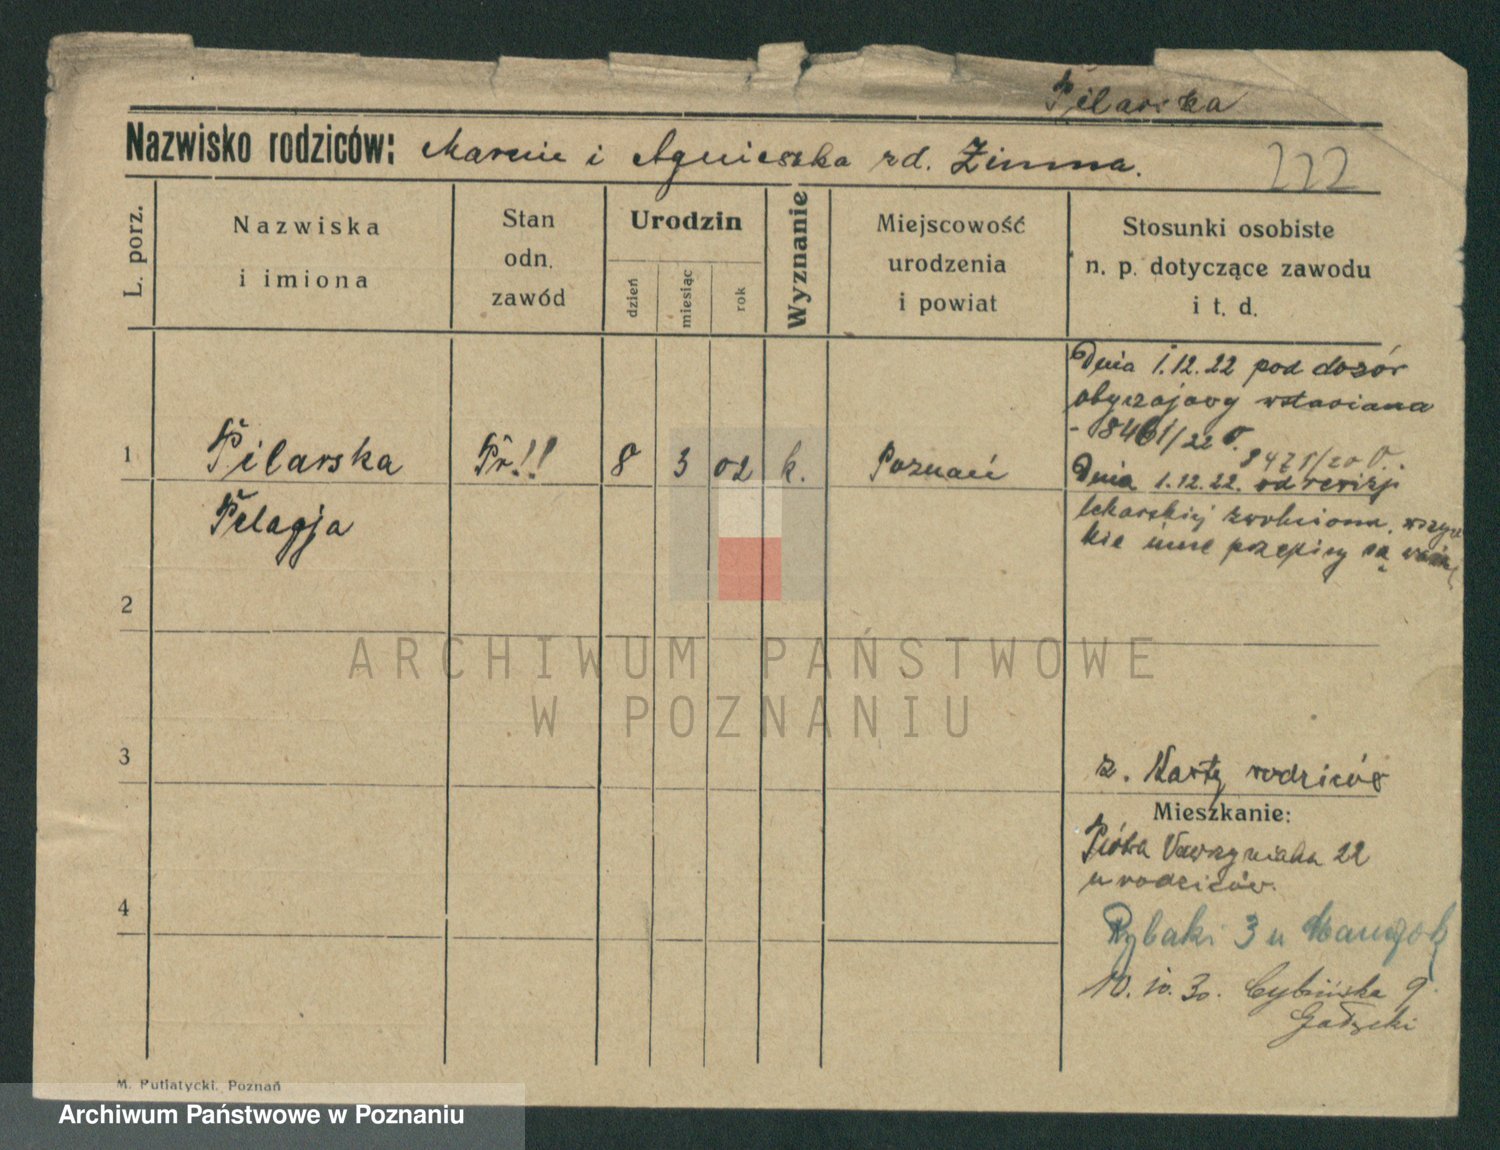 Pilarska
Nazwisko rodziców: Marcin i Agnieszka rd. Zimna.
222
L. porz.
Nazwiska
i imiona
Stan
odn.
zawód
Urodzin
dzień
miesiąc
rok
Wyznanie
Miejscowość
urodzenia
i powiat
Stosunki osobiste
n. p. dotyczące zawodu
i t. d.
Dnia 1.12.22 pod dozór
obyczajowy wstawiana
- 8461/22 O.
8471/20 O.
1 Pilarska Pr!! 8 3 02 k. Poznań
Dnia 1.12.22. od rewizji
Pelagja
lekarskiej zwolniona, wszyst
kie inne przepisy są
2
3
z. Karty rodziców
Mieszkanie:
Piotra Wawrzyniaka 22
u rodziców.
4
Rybaki 3 u
10.10.30. Cybińska 9.
M. Putiatycki, Poznań
ARCHIWUM PAŃSTWOWE
W POZNANIU
Archiwum Państwowe w Poznaniu